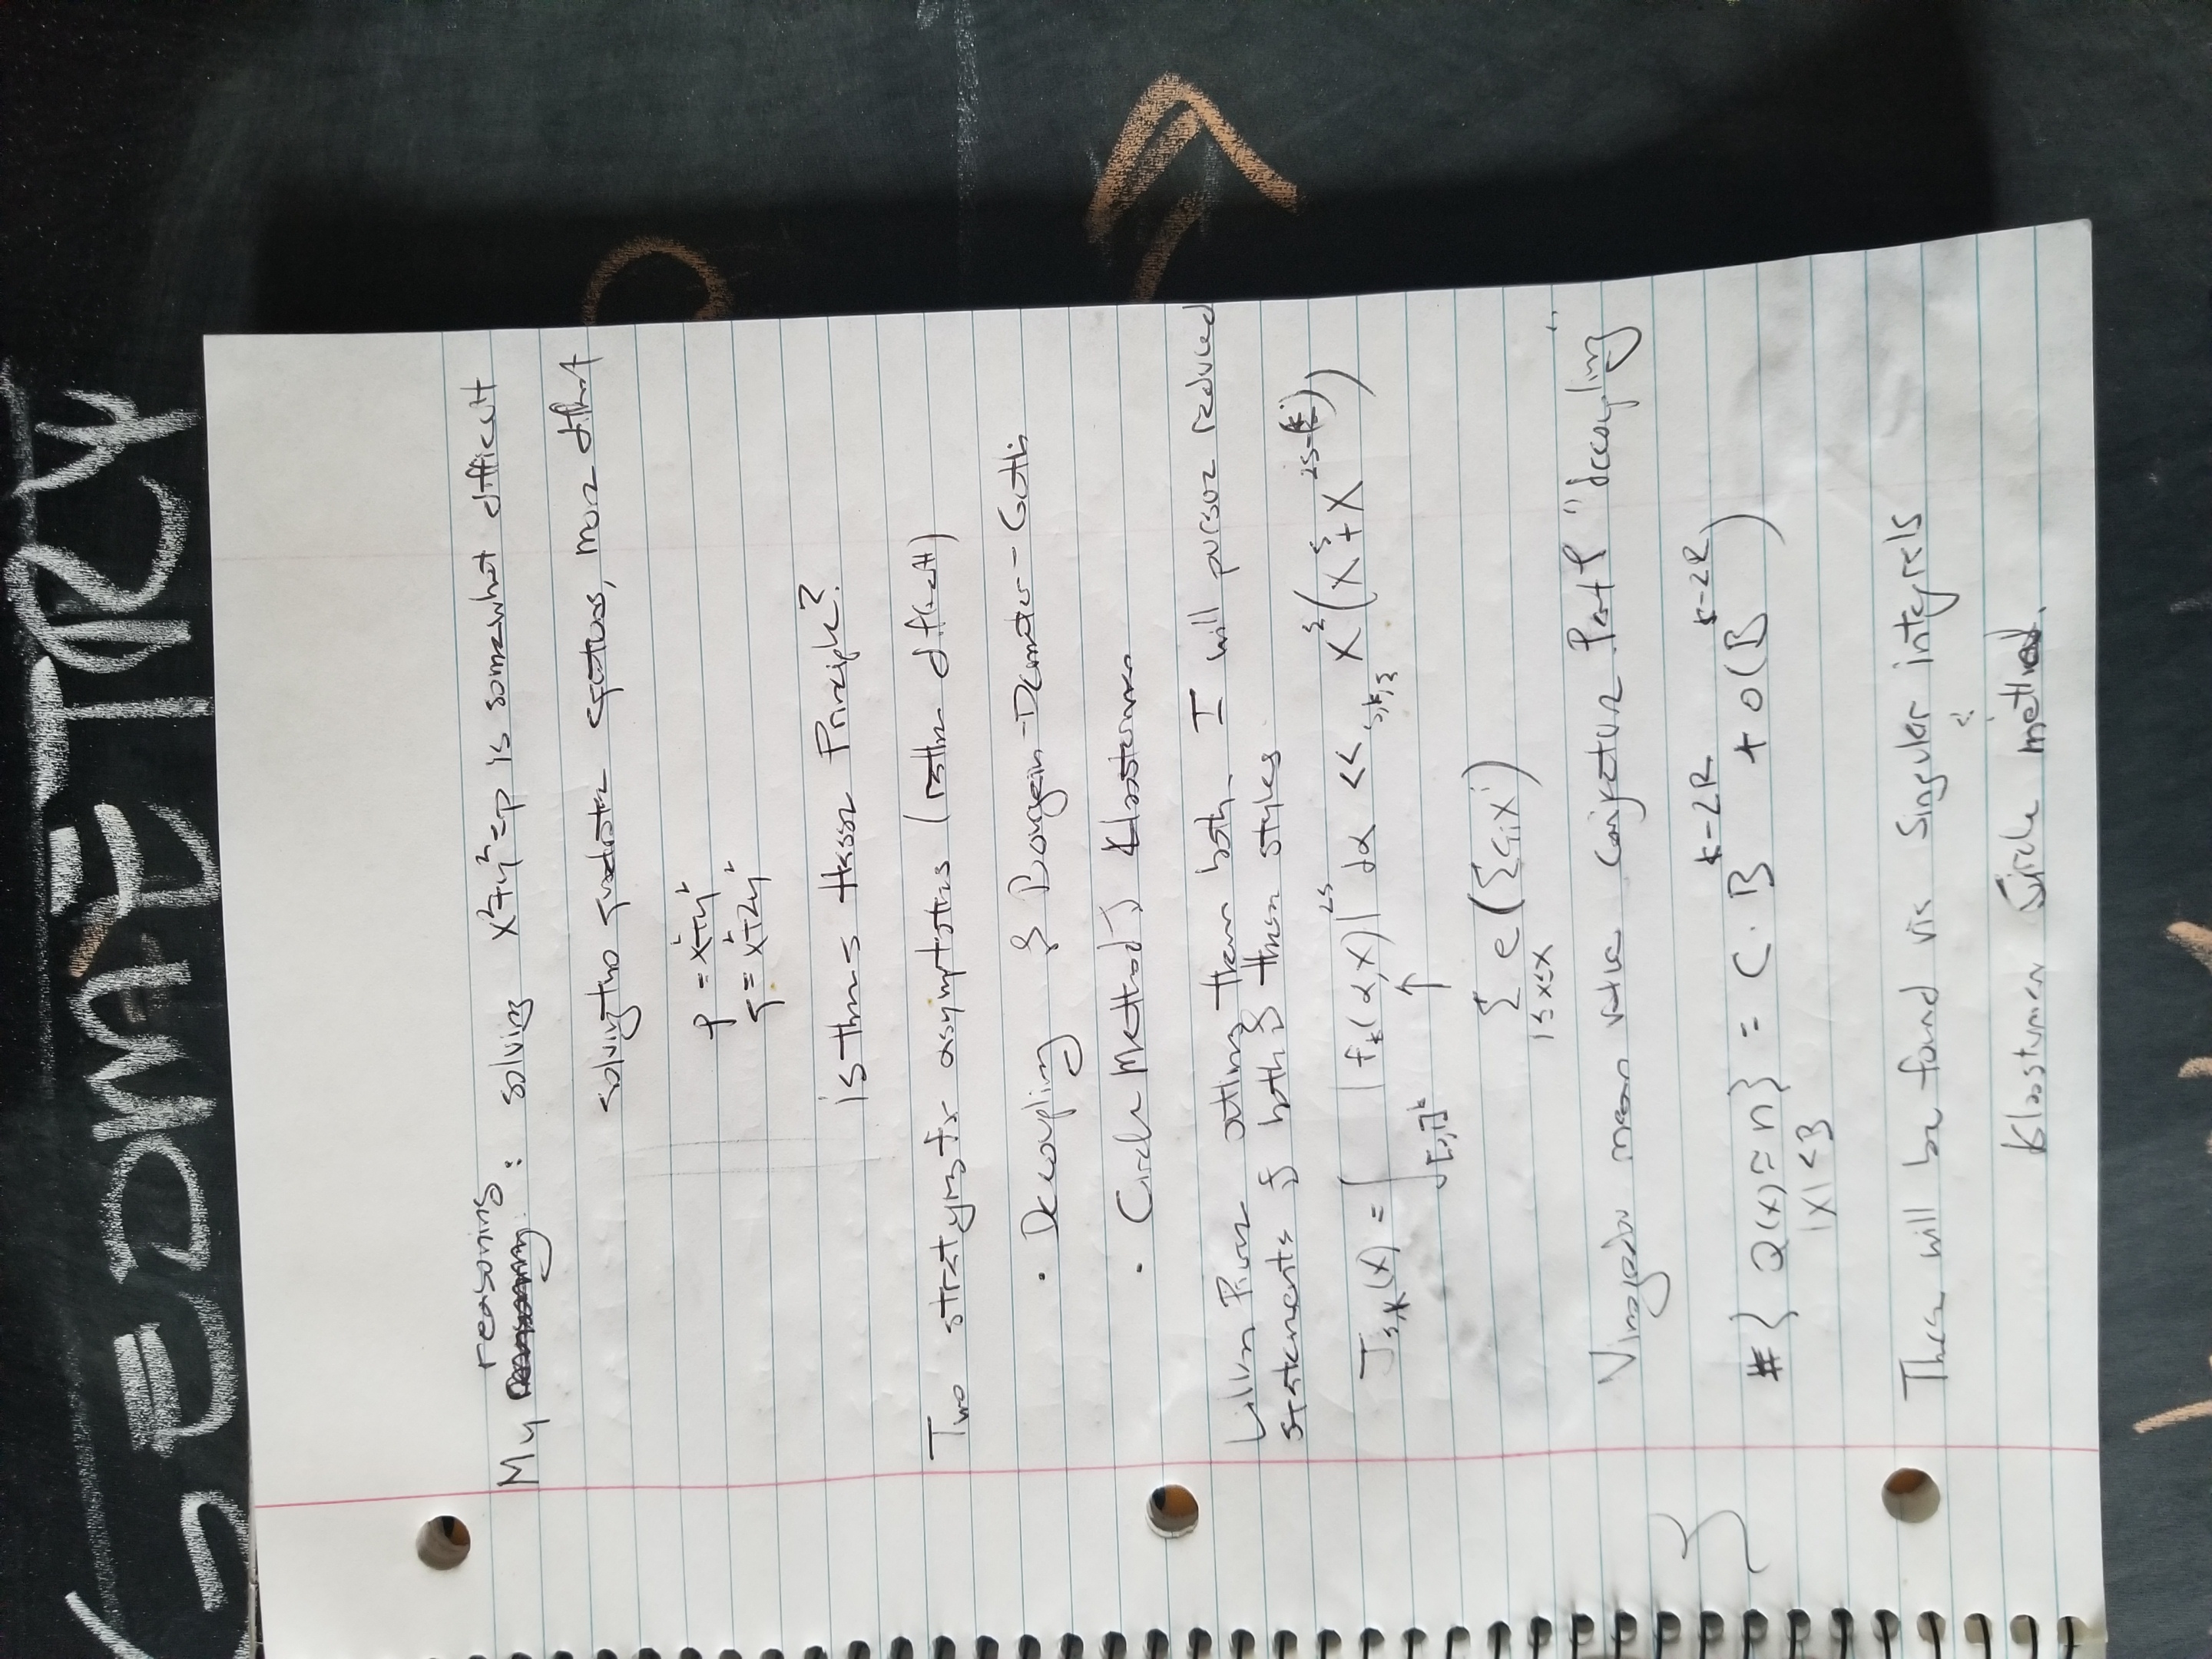 GEOMETRY
reasoning
My reasoning : solving x²+y²=p is somewhat difficult
solving two quadratic equations, more difficult
p = x²+y²
q = x²+2y²
is there a Hasse Principle?
Two strategies for asymptotics (rather difficult)
• Decoupling of Bourgain-Demeter-Guth
• Circle Method of Kloosterman
Lillian Pierce outlines them both. I will pursue reduced
statements of both of these styles
J_{s,k}(X) = ∫_{[0,1]^k} |f_k(α,X)|^{2s} dα <<_{s,k,ε} X^ε(X^s+X^{2s-(k)})
↑
Σ_{1≤x≤X} e(Σ α_i x^i)
Vinogradov mean value conjecture Part of "decoupling"
#{ Q(x)=n} = C·B^{k-2R} + o(B^{k-2R})
|x|<B
These will be found via singular integrals
&
Kloosterman Circle method.